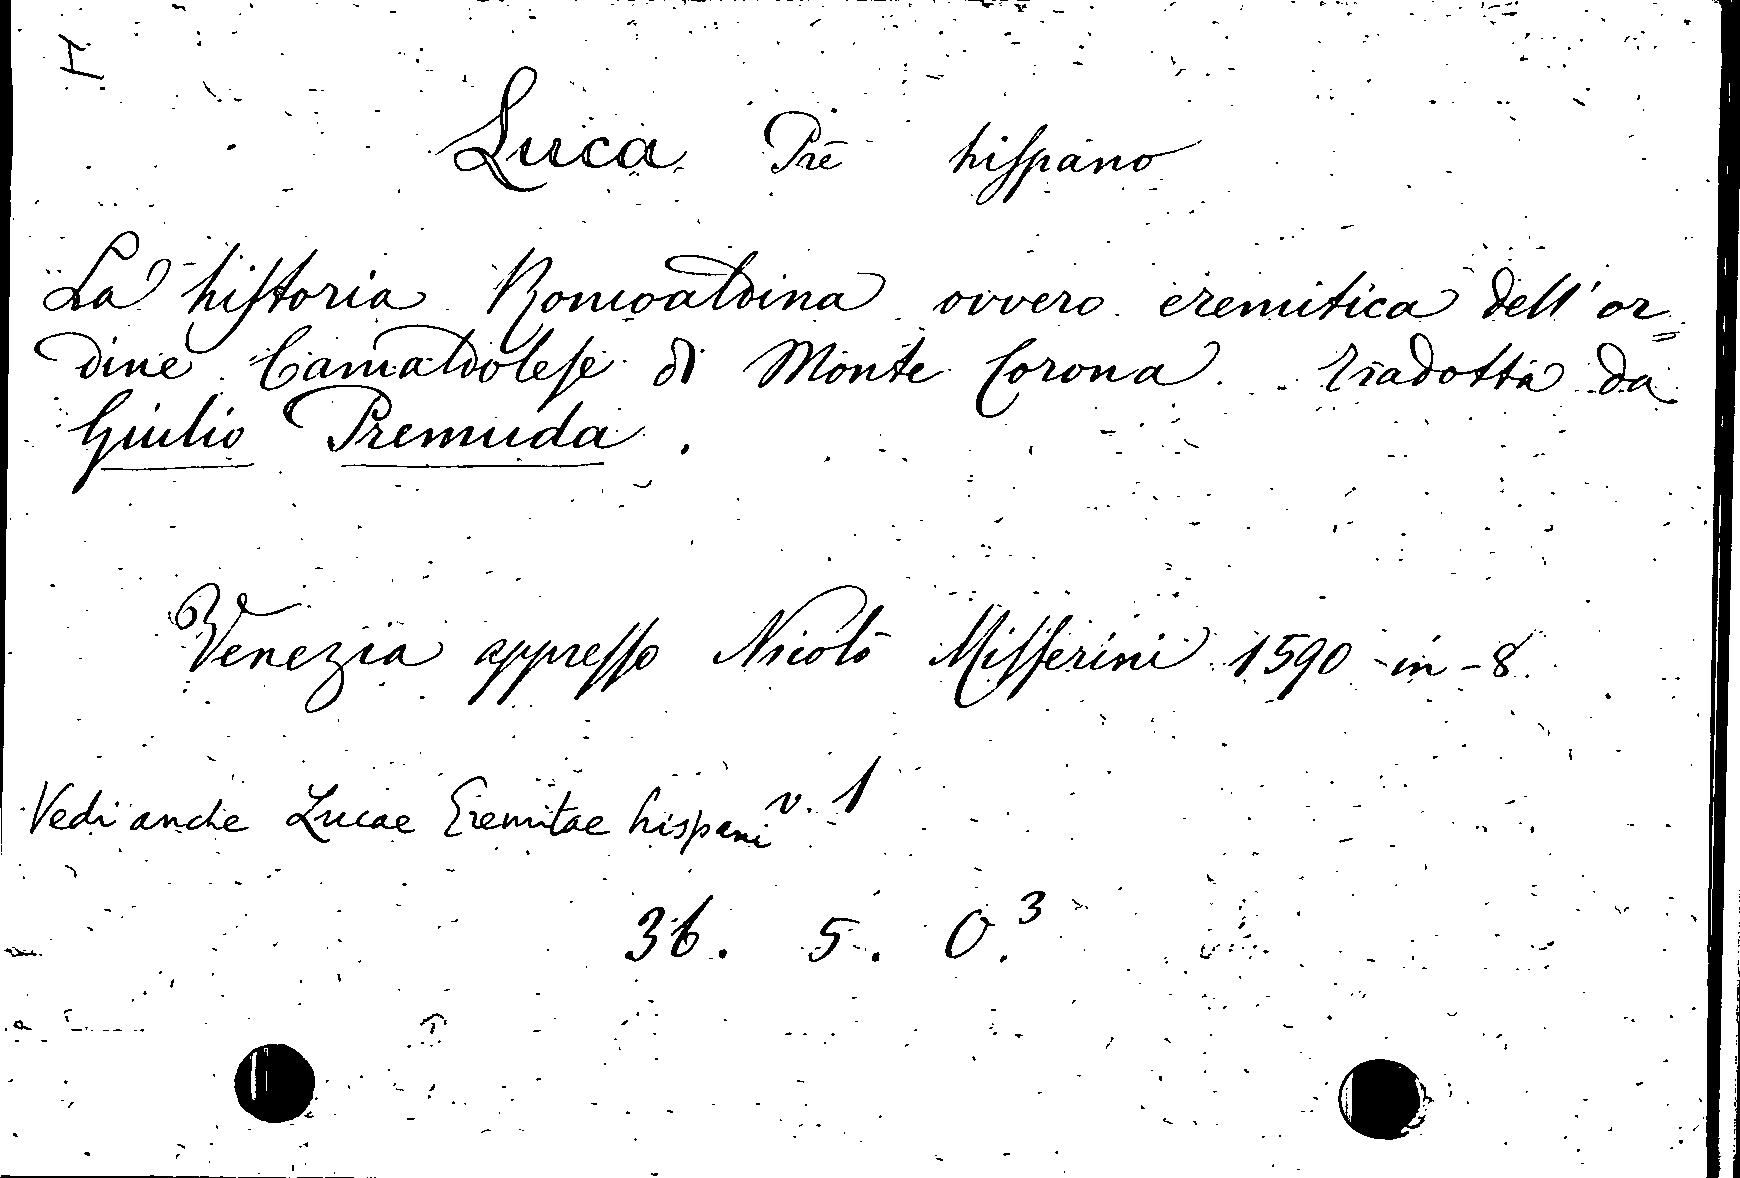 Luca Prē hispano
La historia Romoaldina ovvero eremitica dell'or=
dine Camaldolese di Monte Corona. Tradotta da
Giulio Premuda.
Venezia appresso Nicolò Misserini 1590 in-8.
Vedi anche Lucae Eremitae hispani v. 1
36. 5. O.3